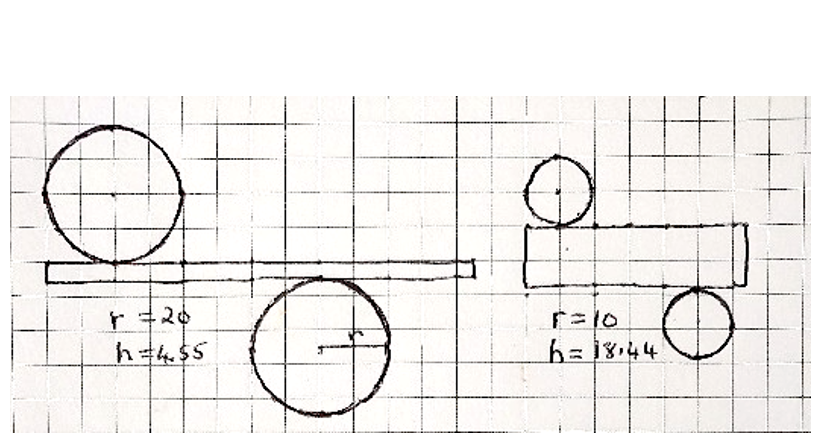 r = 20
h = 4.55
r
r = 10
h = 18.44